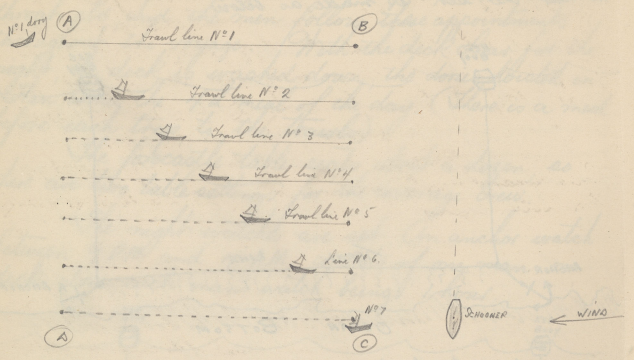 Nº 1, dory
A
B
Trawl line Nº 1
Trawl line Nº 2
Trawl line Nº 3
Trawl line Nº 4
Trawl line Nº 5
Line Nº 6.
Nº 7
SCHOONER
WIND
D
C